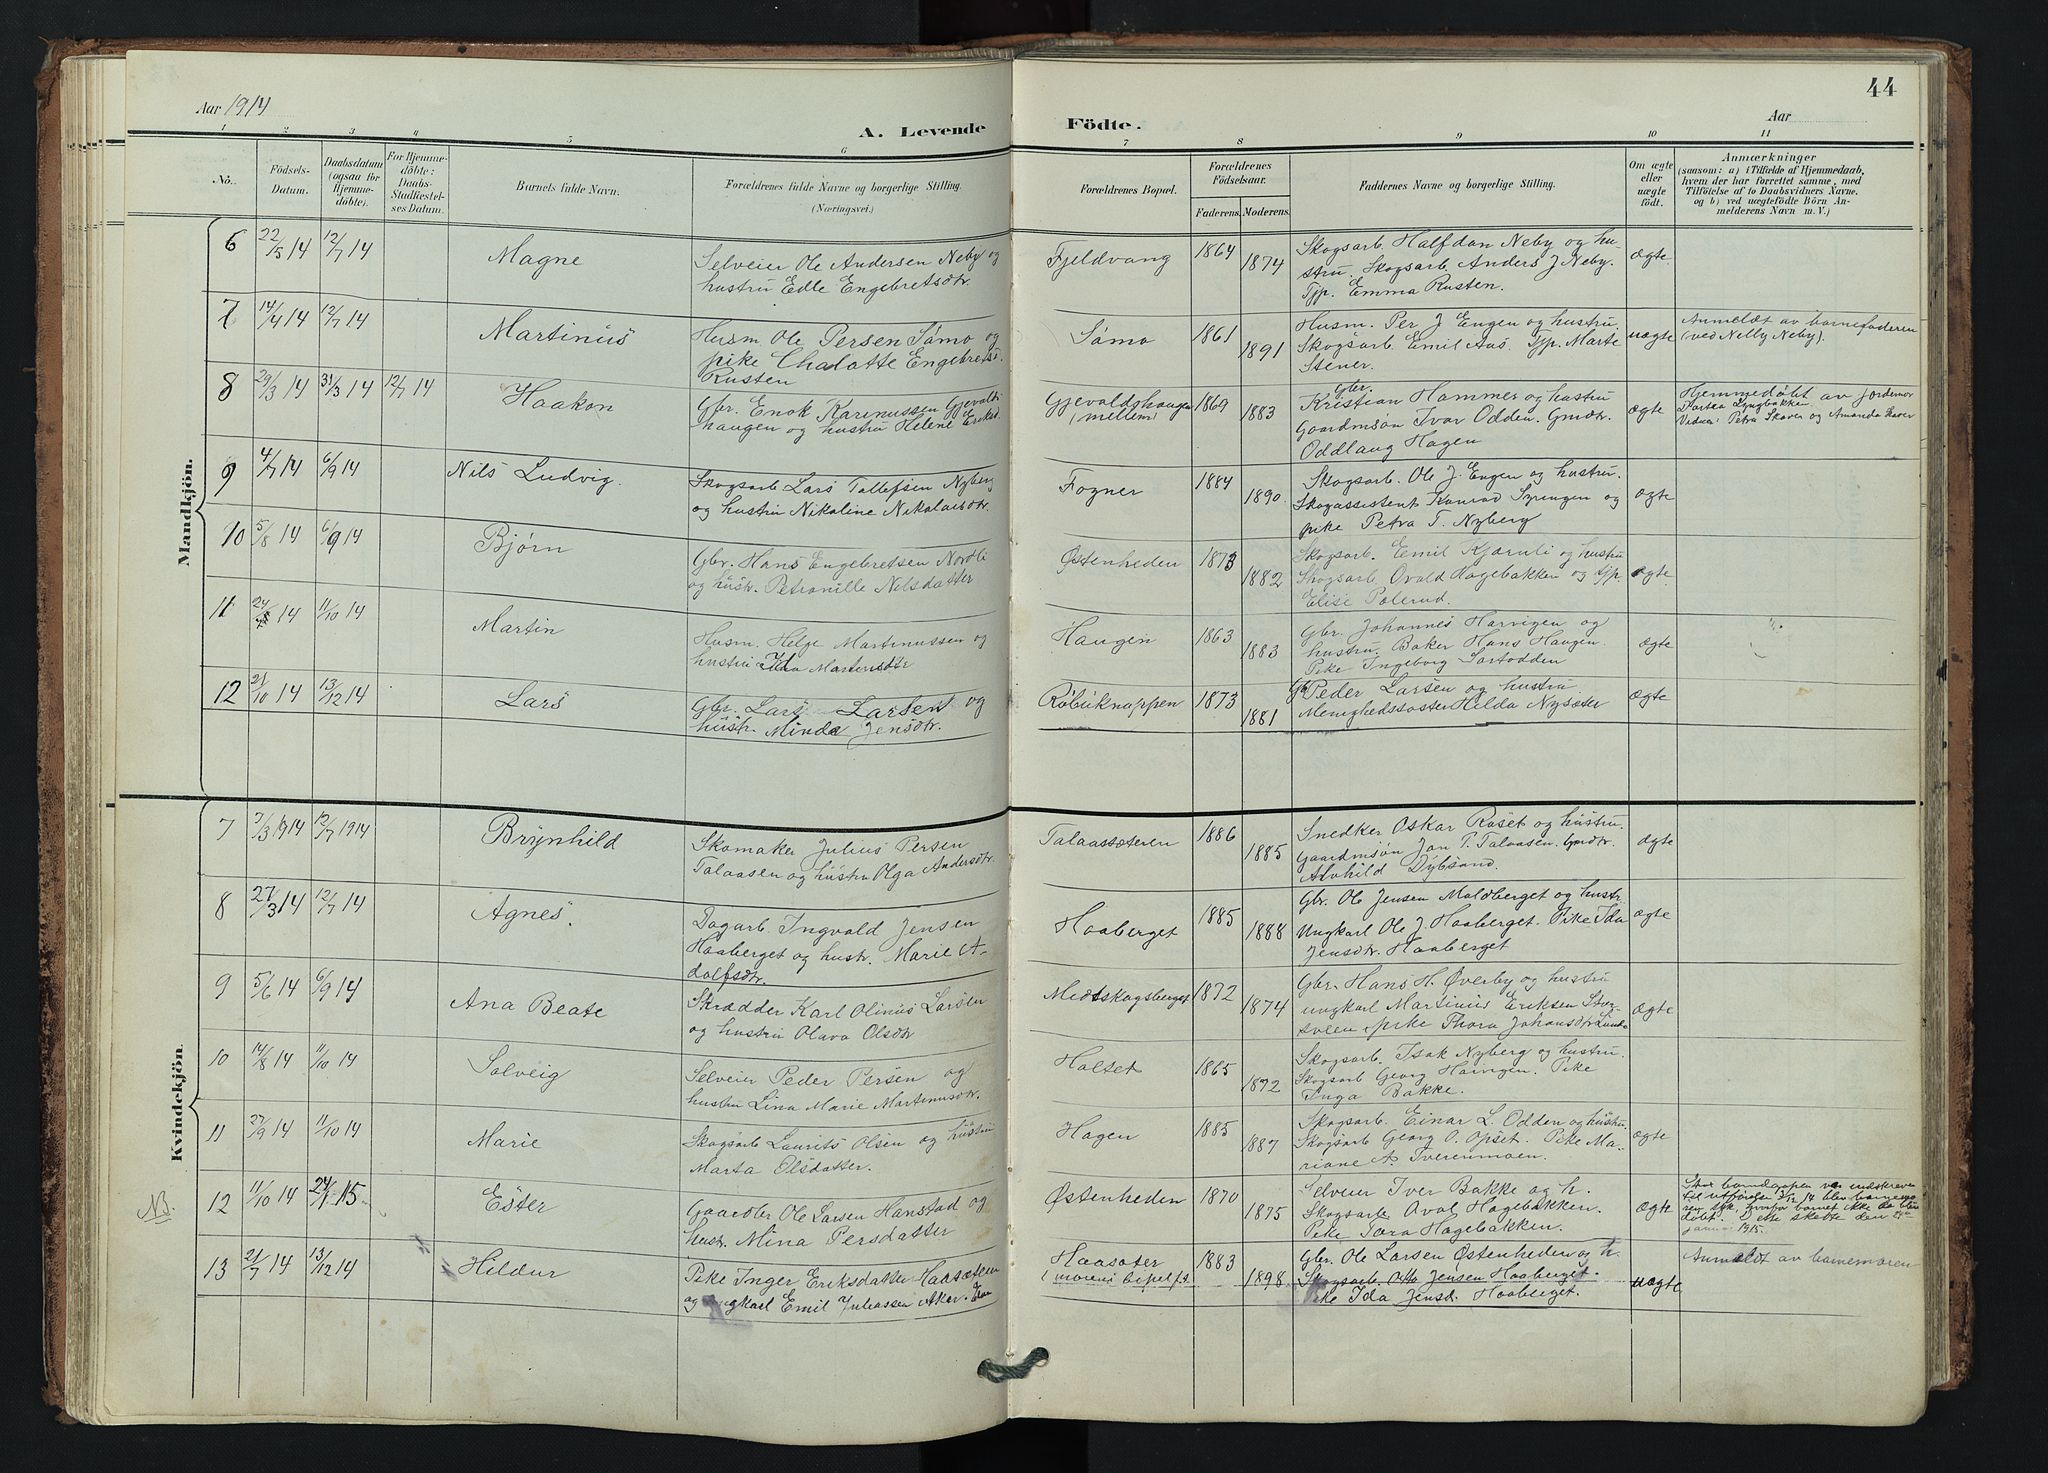 44
Aar 1914
A. Levende Födte.
Aar
1 2 3 4 5 6 7 8 9 10 11
No.
Födsels-
Datum.
Daabsdatum
(ogsaa for
Hjemme-
döbte).
For Hjemme-
döbte:
Daabs-
Stadfæstel-
ses Datum.
Barnets fulde Navn.
Forældrenes fulde Navne og borgerlige Stilling.
(Næringsvei.)
Forældrenes Bopæl.
Forældrenes
Födselsaar.
Faderens. Moderens.
Faddernes Navne og borgerlige Stilling.
Om ægte
eller
uægte
født.
Anmærkninger
(saasom: a) i Tilfælde af Hjemmedaab,
hvem der har forrettet samme, med
Tilföielse af to Daabsvidners Navne.
og b) ved uægtefödte Börn An-
melderens Navn m. V.)
Mandkjön.
6 22/5 14 12/7 14 Magne
Selveier Ole Andersen Neby og
hustru Edle Engebretsdtr.
Fjeldvang 1864 1874
Skogsarb. Halfdan Neby og hu-
stru. Skogsarb. Anders J Neby.
Tjp. Emma Rusten.
ægte
7 14/4 14 12/7 14 Martinus
Husm Ole Persen Sømo og
pike Chalotte Engebrets.
Rusten
Sømo 1861 1891
Husm. Per J Engen og hustru.
Skogsarb Emil Aas. Tjp. Marte
Stener.
uægte
Anmeldt av barnefaderen
(ved Nelly Neby).
8 29/3 14 31/3 14 12/7 14 Haakon
Gbr. Enok Karinussen Gjevalds
haugen og hustru Helene Eriksd
Gjevaldshaugen
(mellem) 1869 1883
Gbr.
Kristian Hammer og hustru
Gaardmsøn Ivar Odden. Gmdtr.
Oddlaug Hagen
ægte
Hjemmedøbt av jordemor
Martea Lyngbakken
Vidner: Petra Skaver og Amanda Skaver
9 4/7 14 6/9 14 Nils Ludvig.
Skogsarb Lars Tollefsen Nyberg
og hustru Nikoline Nikolaisdtr.
Fogner 1884 1890.
Skogsarb. Ole J. Engen og hustru.
Skogassistent Konrad Syringen og
pike Petra T. Nyberg
ægte
10 5/8 14 6/9 14 Bjørn
Gbr. Hans Engebretsen Nordli
og hustr. Petronille Nilsdatter
Østenheden 1873 1882
Skogsarb. Emil Kjærnli og hustru
Skogsarb. Ovald Hagebakken og Tjp.
Elise Polerud.
ægte
11 14 11/10 14 Martin
Husm. Helge Martinussen og
hustru Ida Martinsdtr
Haugen 1863 1883
Gbr. Johannes Harvigen og
hustru. Baker Hans Haugen.
Pike Ingeborg Sortodden
ægte
12 21/10 14 13/12 14 Lars
Gbr. Lars Larsen og
hustr. Minda Jensdtr.
Røbuknappen 1873 1881
Gbr Peder Larsen og hustru
Menighedssøster Hilda Nysæter
ægte
Kvindekjön.
7 7/3 1914 12/7 1914 Brynhild
Skomaker Julius Persen
Talaasen og hustru Olga Andersdtr.
Talaassæteren 1886 1885
Snedker Oskar Roset og hustru.
Gaardmsøn Jon P. Talaasen. Gmdtr.
Alvhild Dybsand.
ægte
8 27/3 14 12/7 14 Agnes.
Dagarb. Ingvald Jensen
Haaberget og hustr. Marie A-
dolfsdtr.
Haaberget 1885 1888
Gbr. Ole Jensen Moldberget og hustr.
Ungkarl Ole J. Haaberget. Pike Ida
Jensdtr. Haaberget
ægte
9 5/6 14 6/9 14 Ana Beate
Skrædder Karl Olinus Larsen
og hustru Olava Olsdtr
Medskogsberget 1872 1874
Gbr. Hans H. Øverby og hustru
ungkarl Martinus Eriksen Stor-
sveen. pike Thora Johansdtr Lunde
ægte
10 14/8 14 11/10 14 Solveig
Selveier Peder Persen og
hustru Lina Marie Martinusdtr.
Holtet 1865 1872
Skogsarb. Isak Nyberg og hustru.
Skogsarb Georg Haugen. Pike
Inga Bakke.
11 27/9 14 11/10 14 Marie
Skogsarb Laurits Olsen og hustru
Marta Olsdatter.
Hagen 1885 1887
Skogsarb. Einar L. Odden og hustru
Skogsarb Georg O. Opset. Pike Ma-
riane A. Tverenmoen.
ægte
NB. 12 11/10 14 24/1 15. Ester
Gaardbr Ole Larsen Hanstad og
hustr. Mina Persdatter
Østenheden 1870 1875
Selveier Iver Bakke og h.
Skogsarb. Oval Hagebakken.
Pike Tora Hagebakken.
ægte
blev barnemo-
ren syk, hvorfor barnet ikke da blev
døbt. Dette skedde den 24de
januar 1915.
13 21/7 14 13/12 14 Hildur
Pike Inger Eriksdatter Haasæteren
og ungkarl Emil Juliussen Aker.
Haasæter
(morens bopel f.t. 1883 1898
Gbr. Ole Larsen Østenheden og h.
Skogsarb. Otto Jensen Haaberget.
Pike Ida Jensd. Haaberget.
uægte
Anmeldt av barnemoren